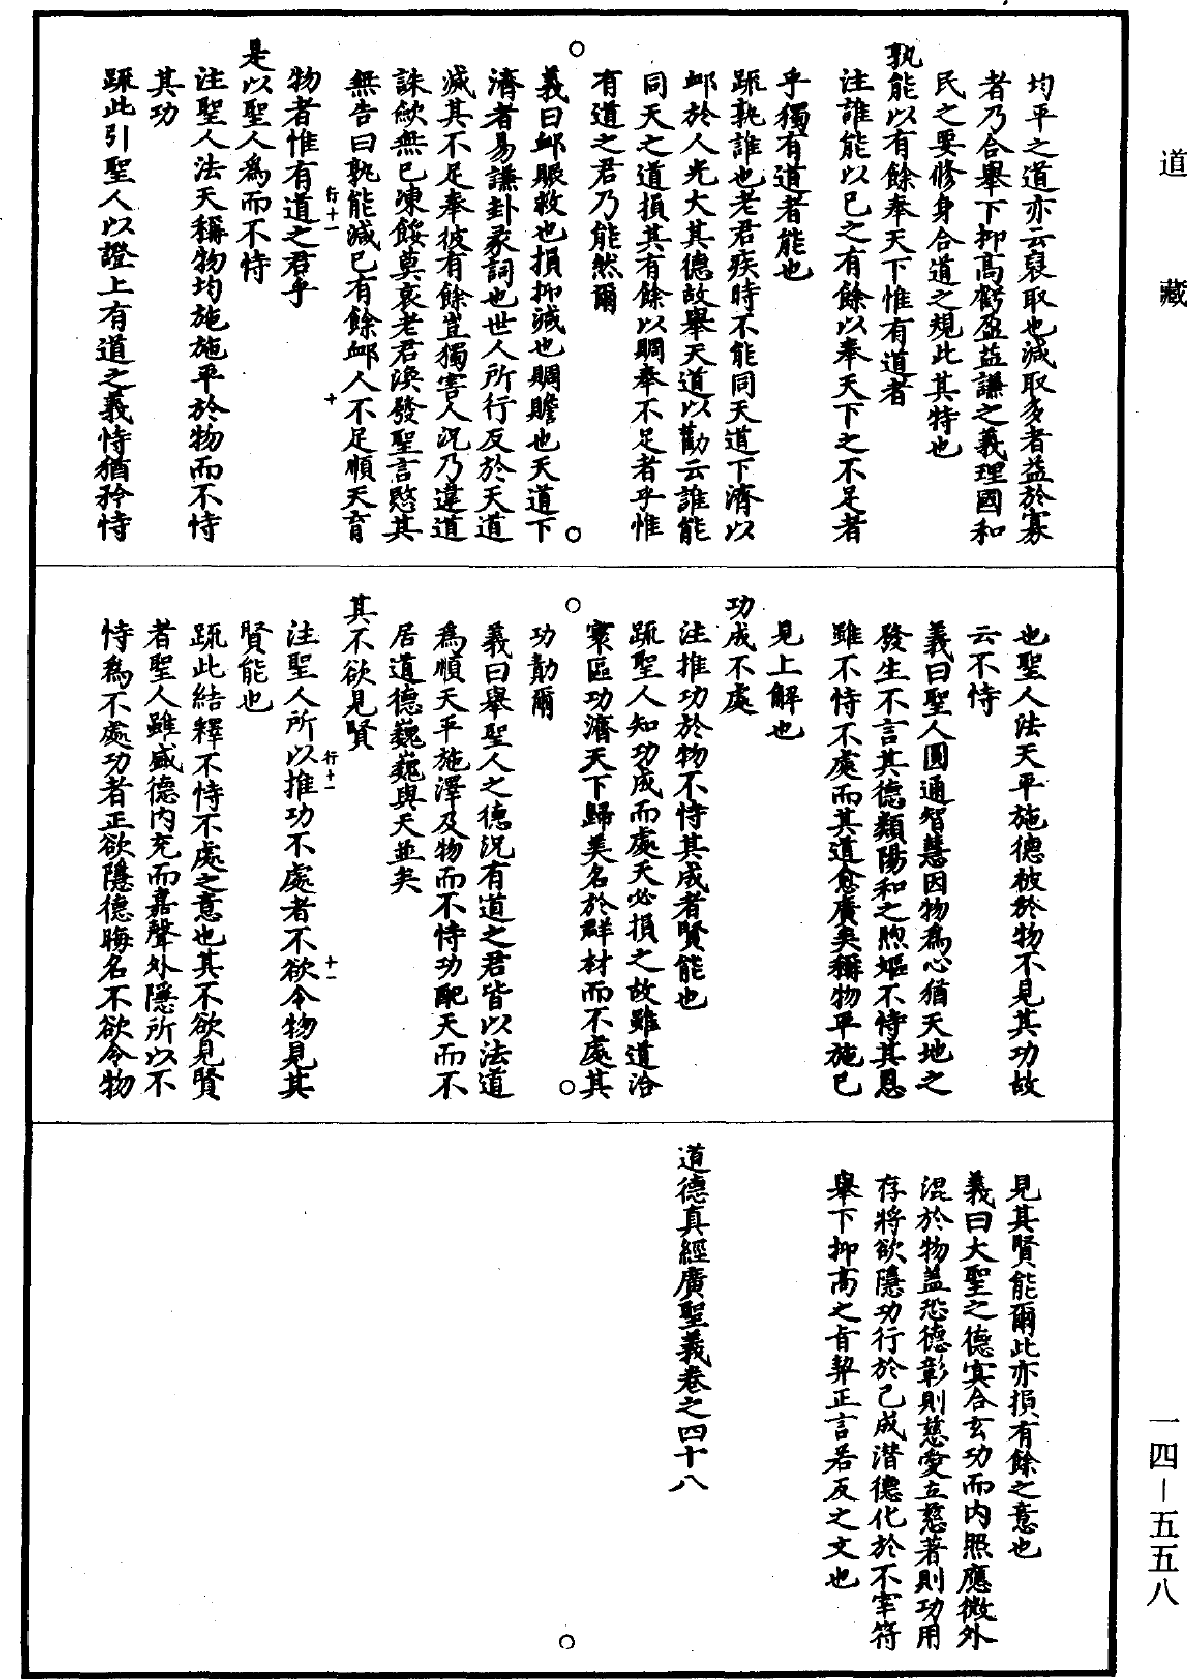 道藏
均平之道亦云裒取也減取多者益於寡
者乃合舉下抑高虧盈益謙之義理國和
民之要修身合道之規此其特也
孰能以有餘奉天下惟有道者
注誰能以已之有餘以奉天下之不足者
乎獨有道者能也
疏孰誰也老君疾時不能同天道下濟以
邺於人光大其德故舉天道以勸云誰能
同天之道損其有餘以賙奉不足者乎惟
有道之君乃能然爾
義曰邺賑救也損抑減也賙贍也天道下
濟者易謙卦彖詞也世人所行反於天道
減其不足奉彼有餘豈獨害人況乃違道
誅斂無已凍餒莫哀老君渙發聖言愍其
無告曰孰能減已有餘邺人不足順天育
行十一 十
物者惟有道之君乎
是以聖人爲而不恃
注聖人法天稱物均施施平於物而不恃
其功
疏此引聖人以證上有道之義恃猶矜恃
也聖人法天平施德被於物不見其功故
云不恃
義曰聖人圓通智慧因物爲心猶天地之
發生不言其德類陽和之煦嫗不恃其恩
雖不恃不處而其道愈廣矣稱物平施已
見上解也
功成不處
注推功於物不恃其成者賢能也
疏聖人知功成而處天必損之故雖道洽
寰區功濟天下歸美名於群材而不處其
功勛爾
義曰舉聖人之德況有道之君皆以法道
爲順天平施澤及物而不恃功配天而不
居道德巍巍與天並矣
其不欲見賢
行十一 十一
注聖人所以推功不處者不欲令物見其
賢能也
疏此結釋不恃不處之意也其不欲見賢
者聖人雖盛德內充而嘉聲外隱所以不
恃爲不處功者正欲隱德晦名不欲令物
見其賢能爾此亦損有餘之意也
義曰大聖之德寘合玄功而內照應微外
混於物蓋恐德彰則慈愛立慈著則功用
存將欲隱功行於已成潛德化於不宰符
舉下抑高之旨契正言若反之文也
道德真經廣聖義卷之四十八
一四－五五八